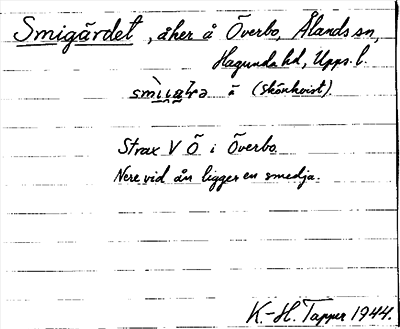 Smigärdet, åker å Överbo, Ålands sn,
Hagunda hd, Upps. l.
å (Skönkvist).
Strax V Ö i Överbo.
Nere vid ån ligger en smedja.
K.-H. Tapper 1944.